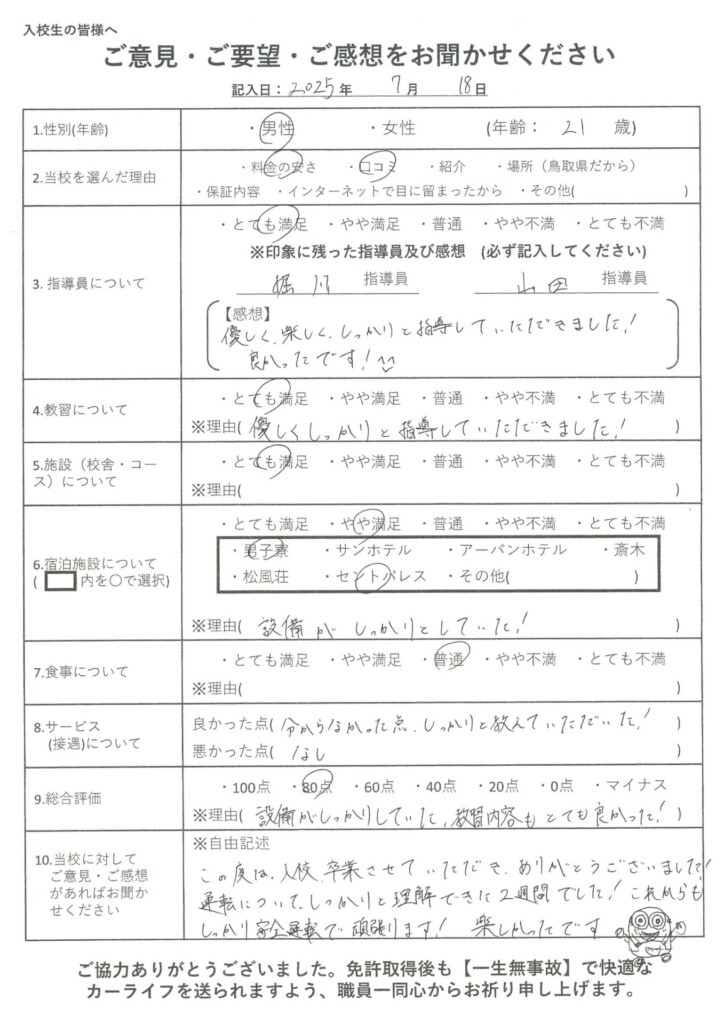 入校生の皆様へ
ご意見・ご要望・ご感想をお聞かせください
記入日：2025年 7月 18日
1.性別(年齢) ・男性 ・女性 (年齢： 21 歳)
2.当校を選んだ理由 ・料金の安さ ・口コミ ・紹介 ・場所（鳥取県だから）
・保証内容 ・インターネットで目に留まったから ・その他( )
3. 指導員について ・とても満足 ・やや満足 ・普通 ・やや不満 ・とても不満
※印象に残った指導員及び感想 （必ず記入してください）
堀川 指導員 山田 指導員
【感想】
優しく、楽しく、しっかりと指導していただきました！
良かったです！^^
4.教習について ・とても満足 ・やや満足 ・普通 ・やや不満 ・とても不満
※理由( 優しくしっかりと指導していただきました！ )
5.施設（校舎・コース）について ・とても満足 ・やや満足 ・普通 ・やや不満 ・とても不満
※理由( )
6.宿泊施設について ・とても満足 ・やや満足 ・普通 ・やや不満 ・とても不満
( 内を○で選択) ・男子寮 ・サンホテル ・アーバンホテル ・斎木
・松風荘 ・セントパレス ・その他( )
※理由( 設備がしっかりとしていた！ )
7.食事について ・とても満足 ・やや満足 ・普通 ・やや不満 ・とても不満
※理由( )
8.サービス(接遇)について 良かった点( 分からなかった点、しっかりと教えていただいた！ )
悪かった点( なし )
9.総合評価 ・100点 ・80点 ・60点 ・40点 ・20点 ・0点 ・マイナス
※理由( 設備がしっかりしていた、教習内容もとても良かった！ )
10.当校に対してご意見・ご感想があればお聞かせください ※自由記述
この度は、入校、卒業させていただき、ありがとうございました！
運転について、しっかりと理解できた2週間でした！これからも
しっかり安全運転で頑張ります！ 楽しかったです
ご協力ありがとうございました。免許取得後も【一生無事故】で快適な
カーライフを送られますよう、職員一同心からお祈り申し上げます。